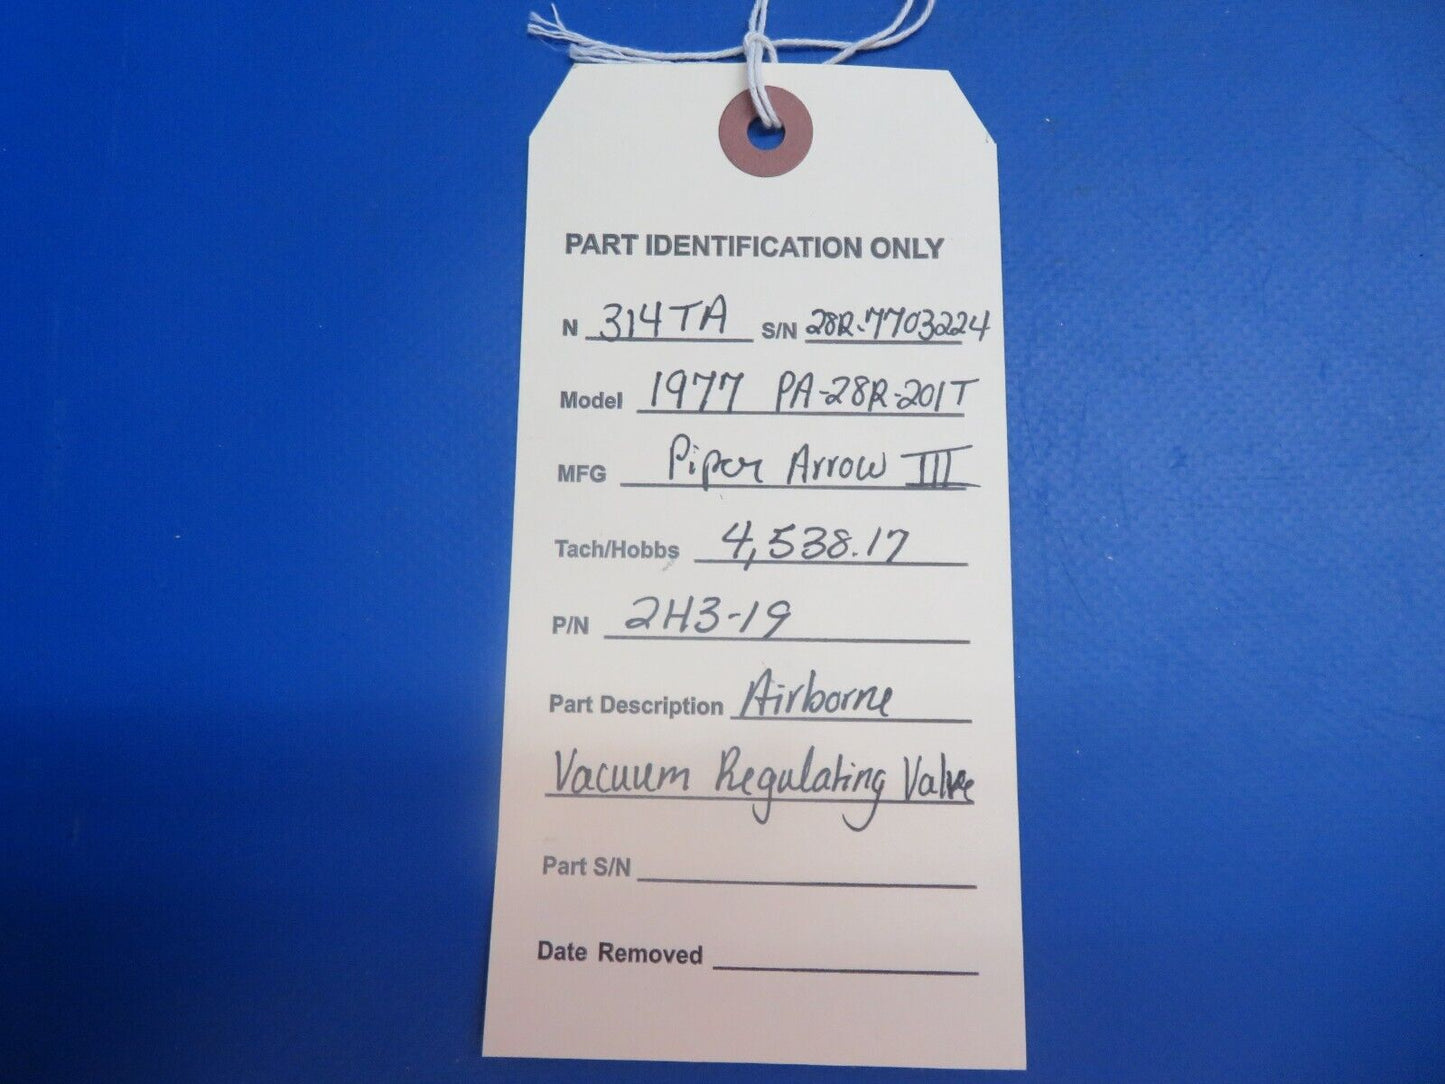 PART IDENTIFICATION ONLY
N 314TA S/N 28R-7703224
Model 1977 PA-28R-201T
MFG Piper Arrow III
Tach/Hobbs 4,538.17
P/N 2H3-19
Part Description Airborne
Vacuum Regulating Valve
Part S/N
Date Removed